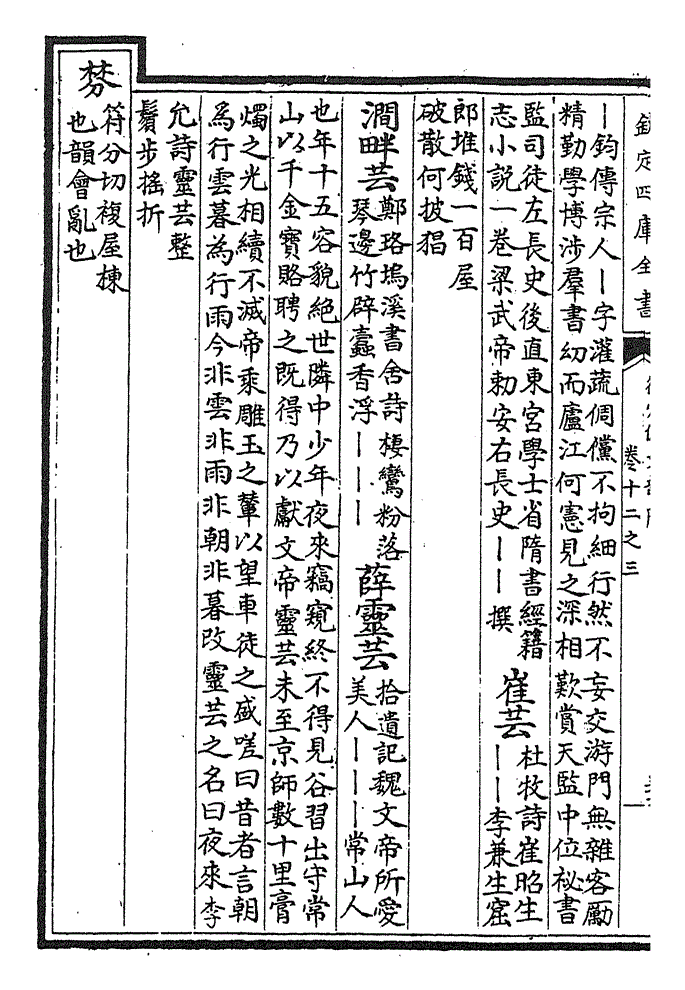 欽定四庫全書
卷十二之三
｜鈞傳宗人｜字灌蔬倜儻不拘細行然不妄交游門無雜客勵
精勤學博涉羣書幼而廬江何憲見之深相歎賞天監中位祕書
監司徒左長史後直東宮學士省隋書經籍
志小說一卷梁武帝勅安右長史｜｜撰
崔芸
杜牧詩崔昭生
｜｜李兼生窟
郎堆錢一百屋
破散何披猖
澗畔芸
鄭珞塢溪書舍詩棲鸞粉落
琴邊竹辟蠹香浮｜｜｜
薛靈芸
拾遺記魏文帝所愛
美人｜｜｜常山人
也年十五容貌絶世隣中少年夜來竊窺終不得見谷習出守常
山以千金寶賂聘之既得乃以獻文帝靈芸未至京師數十里膏
燭之光相續不滅帝乘雕玉之輦以望車徒之盛嗟曰昔者言朝
為行雲暮為行雨今非雲非雨非朝非暮改靈芸之名曰夜來李
允詩靈芸整
鬢步搖折
棼
符分切複屋棟
也韻會亂也